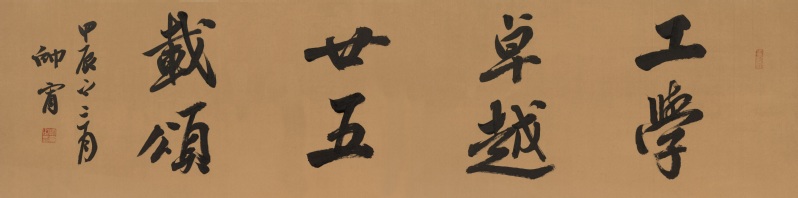 工學
卓越
廿五
載頌
甲辰之三月
帥宵